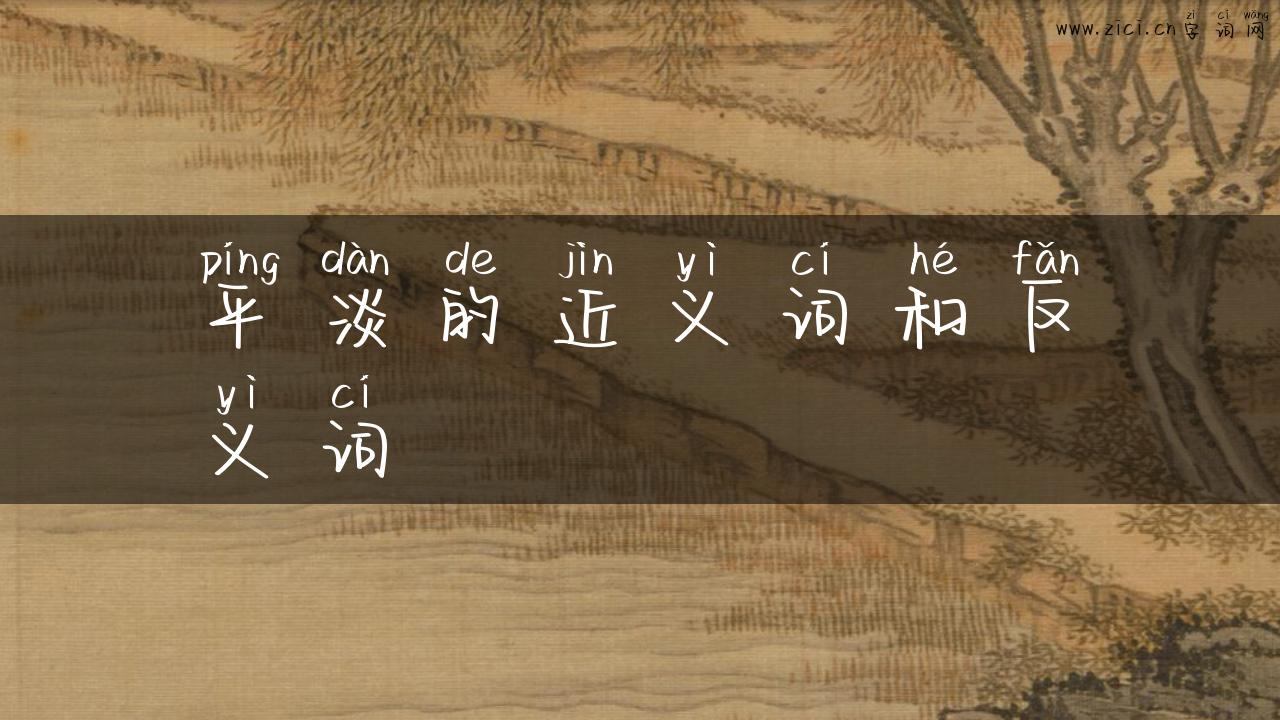 zì cí wǎng
www.zici.cn字词网
píng dàn de jìn yì cí hé fǎn
平淡的近义词和反
yì cí
义词